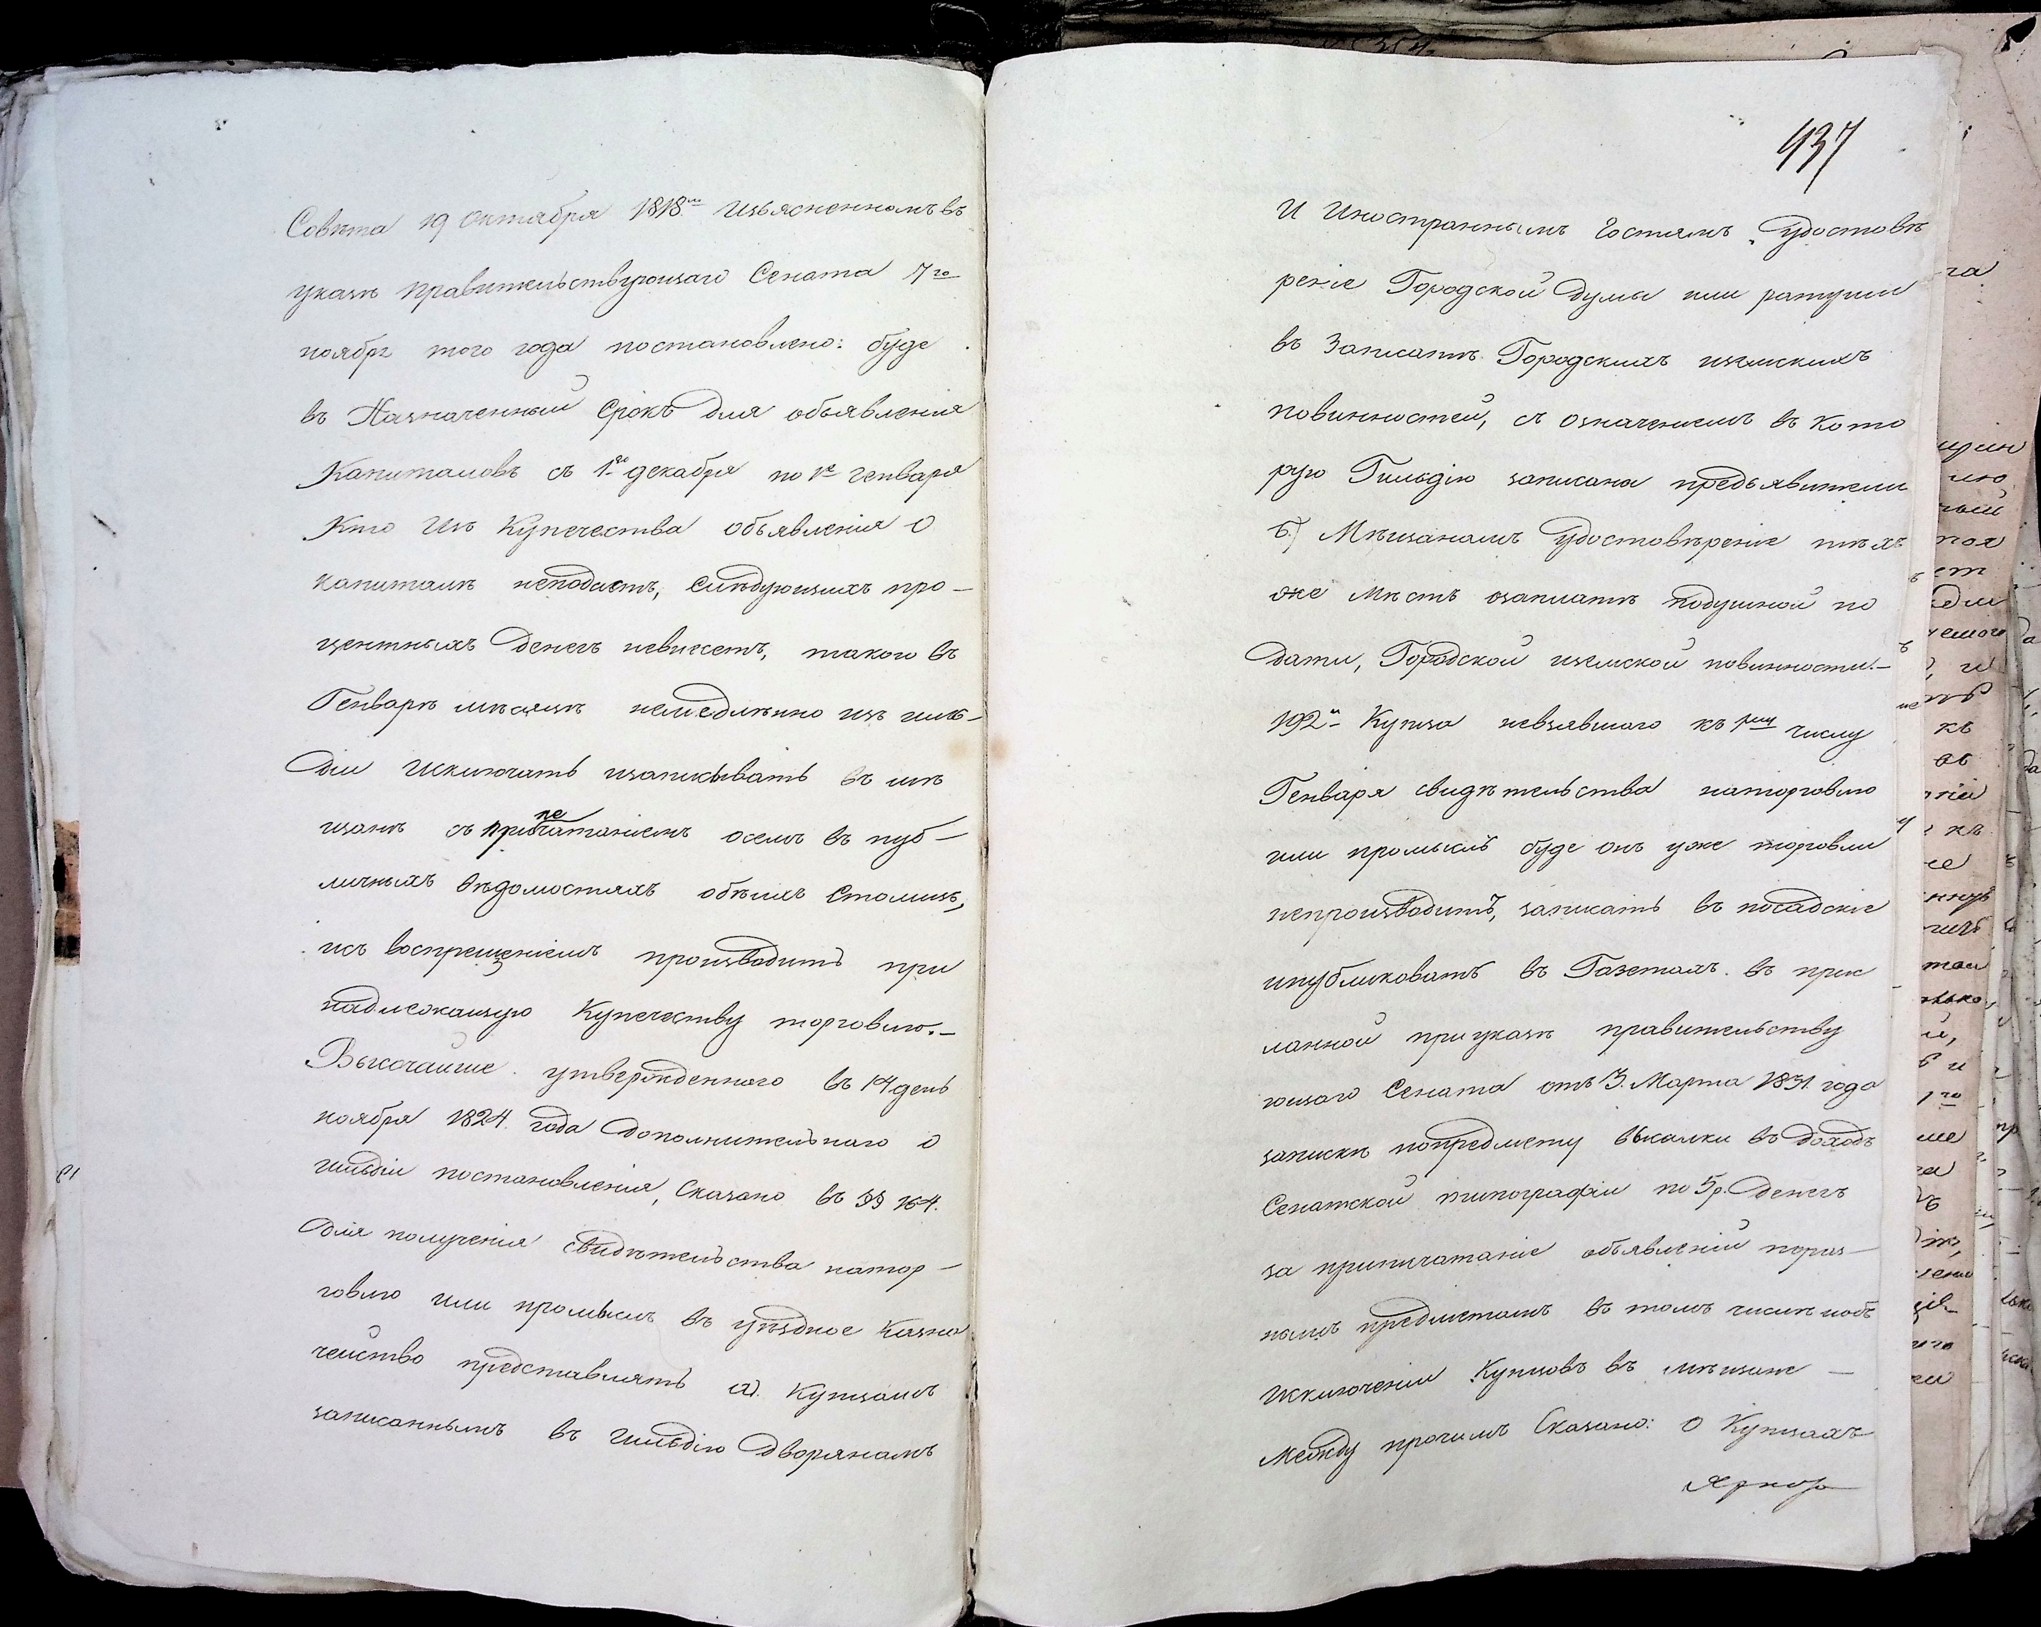 Совѣта 19 Октября 1818.го Изъясненномъ въ
указѣ правительствующаго Сената 7го
ноября того года постановлено: буде
въ Назначенный Срокъ для объявленія
Капиталовъ съ 1го декабря по 1е Генваря
Кто Изъ Купечества объявленія О
капиталѣ неподастъ, Слѣдующихъ про-
центныхъ Денегъ невнесетъ, такого въ
Генварѣ мѣсяцѣ немедлѣнно изъ гиль-
діи Исключать изаписывать въ мѣ
щанѣ съ припечатаніемъ осемъ въ пуб-
личныхъ вѣдомостяхъ обѣихъ Столицъ,
исъ воспрещеніемъ производить при
надлежащую Купечеству торговлю.-
Высочайше утвержденнаго въ 14 день
ноября 1824. года Дополнительнаго о
гильдіи постановленія, Сказано въ §§ 164.
Для полученія свидѣтельства натор-
говлю или промыслъ въ уѣздное Казна
чейство представлять а). Купцамъ
записаннымъ въ гильдію Дворянамъ
937
И Иностраннымъ Гостямъ, Удостовѣ
реніе Городской Думы или ратуши
въ Заплатѣ Городскихъ иземскихъ
повинностей, съ означеніемъ въ Кото
рую Гильдію записана предъявители
б.) Мѣщанамъ Удостовѣреніе тѣхъ
же мѣстъ озаплатѣ подушной по
дати, Городской иземской повинности.-
192й Купца невзявшаго къ 1му числу
Генваря свидѣтельства наторговлю
или промыслъ буде онъ уже торговли
непроизводитъ, записать въ посадскіе
ипубликовать въ Газетахъ. въ прис
ланной приуказѣ правительству
ющаго Сената отъ 3. Марта 1831. года
запискѣ попредмету высылки въ доходъ
Сенатской типографіи по 5р. Денегъ
за припечатаніе объявленій пораз-
нымъ предметамъ въ томъ числѣ иобъ
Исключеніи Купцовъ въ мѣщане -
между прочимъ Сказано: О Купцахъ